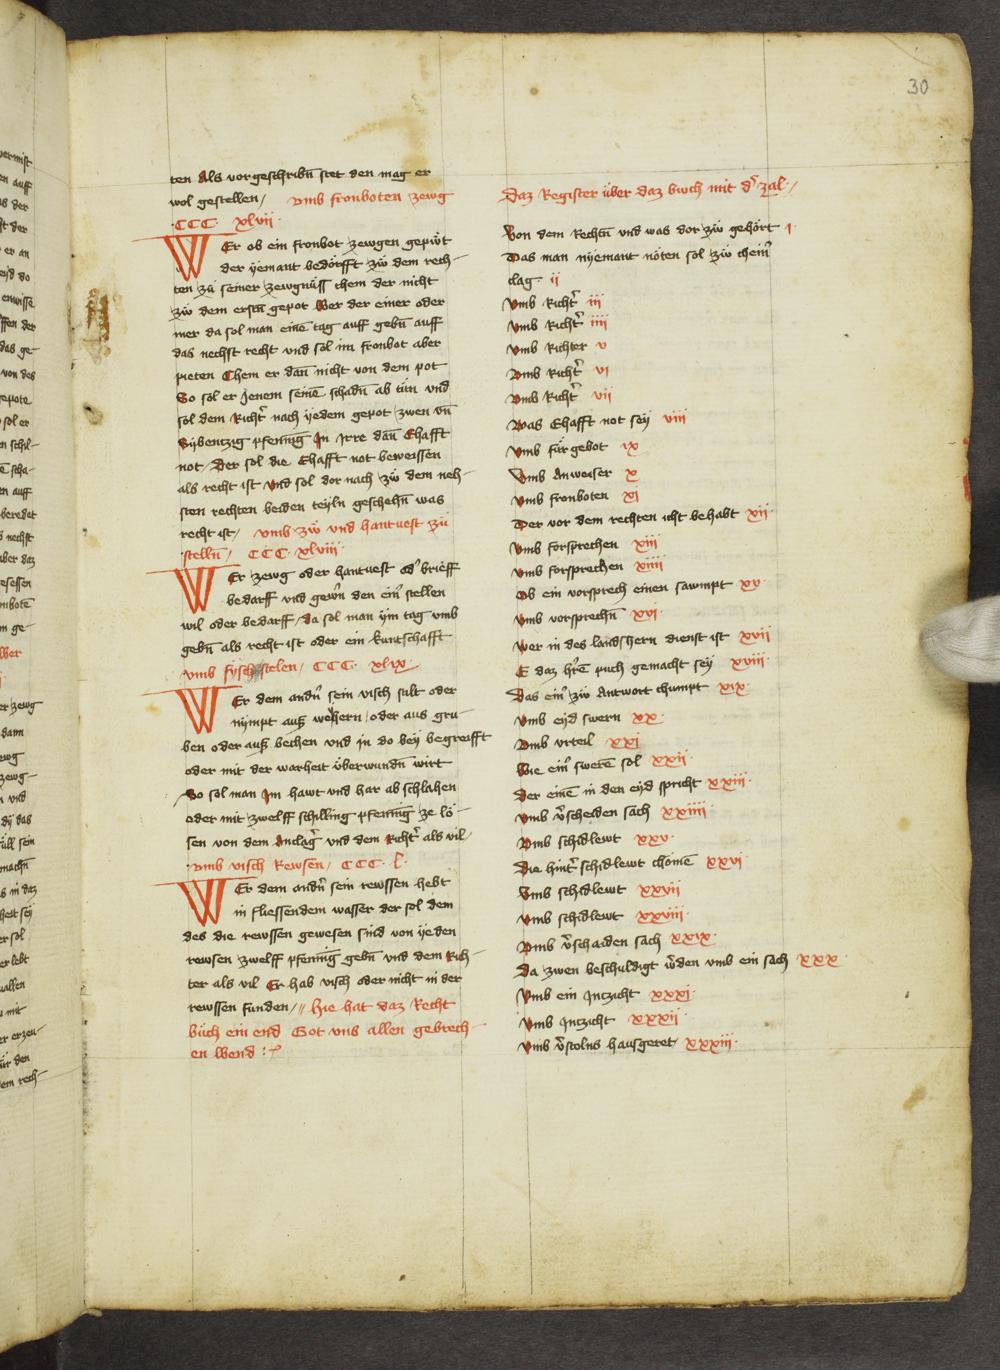 30
ten Als vorgeschribn̄ stet den mag er
wol gestellen / vmb fronboten zewg
·CCC· xlvii·
WEr ob ein fronbot zewgen gepüt
der yemant bedörfft zü dem rech-
ten zü seiner zewgnüss chem der nicht
zü dem erstn̄ gepot Wer der einer oder
mer da sol man eine tag auff gebn̄ auff
das nechst recht vnd sol im fronbot aber
pieten Chem er dan̄ nicht von dem pot
So sol er Jenem seinē schadn̄ ab tün vnd
sol dem Richt͛ nach yedem gepot zwen vn̄
Sybentzig pfenning In Irre dan̄ Ehafft
not / Der sol die Ehafft not beweissen
als recht ist Vnd sol dor nach zü dem neh-
sten rechten beiden teyln geschehn̄ was
recht ist / vmb zü vnd hantuest zü
stelln̄ / CCC· xlviii·
WEr zewg oder hantuest od͛ brieff
bedarff vnd gewn̄ den ein͛ stellen
wil oder bedarff / da sol man ym tag vmb
gebn̄ als recht ist oder ein kuntschafft
vmb fysch stelen / CCC· xlix·
WEr dem andn̄ sein visch stilt oder
nympt auß weyhern / oder aus gru-
ben oder auß bechen vnd in do bey begreifft
oder mit der warheit überwundn̄ wirt
So sol man Im hawt vnd har ab schlahen
oder mit zwelff schilling pfenning ze lö-
sen von dem Anclag͛ vnd dem Richt͛ als vil /
·vmb visch Rewsen / CCC· l·
WEr dem andn̄ sein rewssen hebt
in fliessendem wasser der sol dem
des die rewssen gewesen sind von yeden
rewsen zwelff pfenning gebn̄ vnd dem Rich-
ter als vil Er hab visch oder nicht in der
rewssen funden / // Hie hat daz Recht
büch ein end Got vns allen gebrech-
en Wend :~
Daz Register über daz buch mit d͛ zal· /
Von dem Rechtn̄ vnd was dor zü gehört i·
Das man nyemant nöten sol zü chein͛
clag· ii
Vmb Richt͛ iii
Vmb Richt͛ iiii
Vmb Richter v
Vmb Richt͛ vi
Vmb Richt͛ vii
Was Ehafft not sey viii
Vmb fürgebot ix
Vmb Anweiser x
Vmb fronboten xi
Der vor dem rechten icht behabt xii·
Vmb forsprechen xiii
Vmb forsprechen xiiii
Ob ein vorsprech einen sawmpt xv·
Vmb vorsprechn̄ xvi·
Wer in des landshern dienst ist xvii
E daz h͛re puch gemacht sey xviii·
Das ein͛ zü Antwort chumpt xix·
Vmb eyd swern xx·
Vmb vrteil xxi
Wie ein͛ swerē sol xxii·
Der einē in den eyd spricht xxiii·
Vmb v͛scheiden sach xxiiii·
Vmb schidlewt xxv·
Die hint͛ schidlewt chömē xxvi·
Vmb schidlewt xxvii
Vmb schidlewt xxviii·
Vmb v͛schaiden sach xxix·
Da zwen beschuldigt w͛den vmb ein sach xxx·
Vmb ein Inczicht xxxi·
Vmb Inczicht xxxii·
Vmb v͛stolns hausgeret xxxiii·